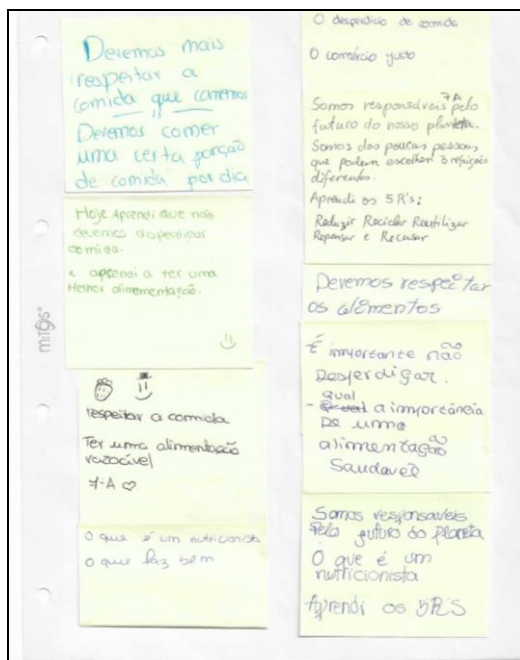 Devemos mais
respeitar a
comida que comemos
Devemos comer
uma certa porção
de comida por dia
Hoje Aprendi que não
devemos disperdiçar
comida.
e aprendi a ter uma
melhor alimementação.
respeitar a comida
Ter uma alimentação
razocível
7-A
O que é um nutricionista
O que faz bem
O desperdício de comida
O comércio justo
7A
Somos responsáveis pelo
futuro do nosso planeta.
Somos das poucas pessoas,
que podem escolher 3 refeições
diferentes.
Aprendi os 5R's:
Reduzir Reciclar Reutilizar
Repensar e Recusar
Devemos respeitar
os alimentos
É importante não
Desperdiçar.
- Qual a importância
De uma
alimentação
Saudavel
Somos responsaveis
Pelo futuro do planeta
O que é um
nutricionista
Aprendi os 5R'S
mitos